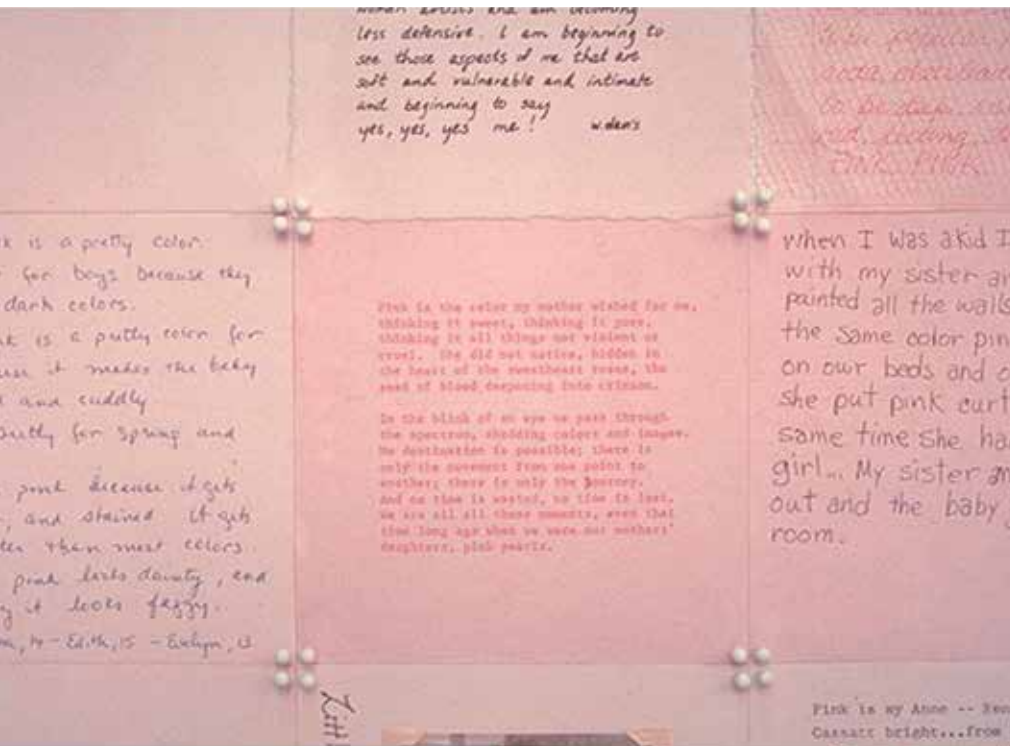 women artists and am becoming
less defensive. I am beginning to
see those aspects of me that are
soft and vulnerable and intimate
and beginning to say
yes, yes, yes me!
PINK PINK
k is a pretty color.
for boys because they
dark colors.
is a pretty color for
it makes the baby
and cuddly
for spring and
pink because it gets
, and stained it gets
than most colors.
pink looks dainty, and
it looks
14 - Edith, 15 - Evelyn, 13
Pink is the color my mother wished for me,
thinking it sweet, thinking it pure,
thinking it all things not violent or
cruel. She did not notice, hidden in
the heart of the sweetheart roses, the
seed of blood deepening into crimson.
In the blink of an eye we pass through
the spectrum, shedding colors and images.
No destination is possible; there is
only the movement from one point to
another; there is only the journey.
And no time is wasted, no time is lost.
We are all all these moments, even that
time long ago when we were our mothers'
daughters, pink pearls.
when I was a kid I
with my sister an
painted all the walls
the same color pin
on our beds and
she put pink curt
same time she ha
girl... My sister an
out and the baby
room.
Pink is my Anne --
Cassatt bright...from